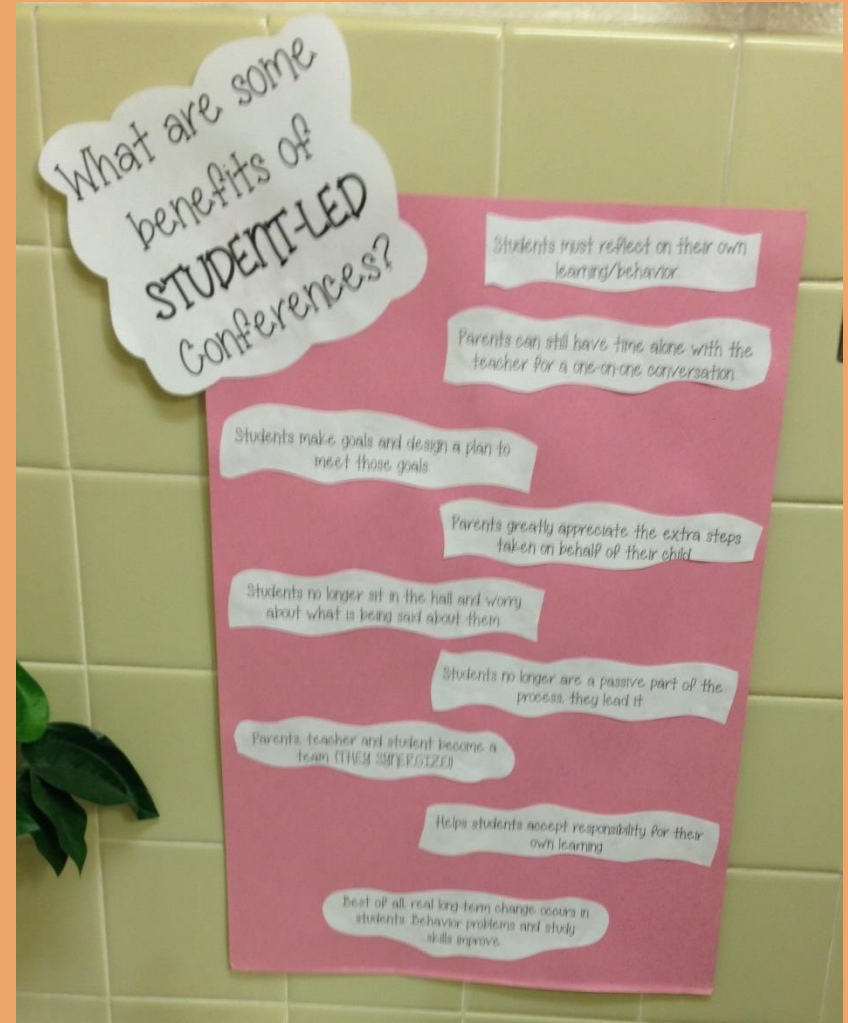 What are some
benefits of
STUDENT-LED
Conferences?
Students must reflect on their own
learning/behavior
Parents can still have time alone with the
teacher for a one-on-one conversation
Students make goals and design a plan to
meet those goals
Parents greatly appreciate the extra steps
taken on behalf of their child
Students no longer sit in the hall and worry
about what is being said about them
Students no longer are a passive part of the
process, they lead it
Parents, teacher and student become a
team (THEY SYNERGIZE!)
Helps students accept responsibility for their
own learning
Best of all, real long-term change occurs in
students. Behavior problems and study
skills improve.